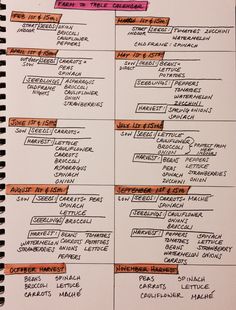 FARM TO TABLE CALENDAR
FEB 1ST & 15TH
START INDOOR SEEDS: ONION
BROCOLI
CAULIFLOWER
PEPPERS
MARCH 1ST & 15TH
START INDOOR SEEDS: TOMATOES ZUCCHINI
WATERMELON
COLD FRAME: SPINACH
APRIL 1ST & 15TH
OUTDOOR SOW SEEDS: CARROTS
PEAS
SPINACH
SEEDLINGS: ASPARAGUS
COLD FRAME NIGHTS BROCCOLI
CAULIFLOWER
ONION
STRAWBERRIES
MAY 1ST & 15TH
SOW DIRECT SEEDS: BEANS
LETTUCE
POTATOES
SEEDLINGS: PEPPERS
TOMATOES
WATERMELON
ZUCCHINI
HARVEST: SPRING ONIONS
SPINACH
JUNE 1ST & 15TH
SOW SEEDS: CARROTS
HARVEST: LETTUCE
CAULIFLOWER
CARROTS
BROCCOLI
ONION
PEAS
ASPARAGUS
STRAWBERRIES
JULY 1ST & 15TH
SOW SEEDS: LETTUCE
CAULIFLOWER
BROCOLI
ONION
PROTECT FROM HEAT INDOORS
HARVEST: BEANS PEPPERS
LETTUCE
PEAS SPINACH
ZUCCHINI ONION
AUGUST 1ST & 15TH
SOW SEEDS: CARROTS
SPINACH
LETTUCE
SEEDLINGS: BROCCOLI
HARVEST: BEANS TOMATOES
WATERMELON CARROTS POTATOES
STRAWBERRIES ONION LETTUCE
PEPPERS
SEPTEMBER 1ST & 15TH
SOW SEEDS: CARROTS MACHÉ
SPINACH
SEEDLINGS: CAULIFLOWER
ONION
BROCOLI
HARVEST: BEANS TOMATOES
LETTUCE STRAWBERRY
WATERMELON ONIONS
CARROTS
OCTOBER HARVEST
BEANS SPINACH
BROCOLI LETTUCE
CARROTS MACHÉ
NOVEMBER HARVEST
PEAS SPINACH
CARROTS LETTUCE
CAULIFLOWER MACHÉ